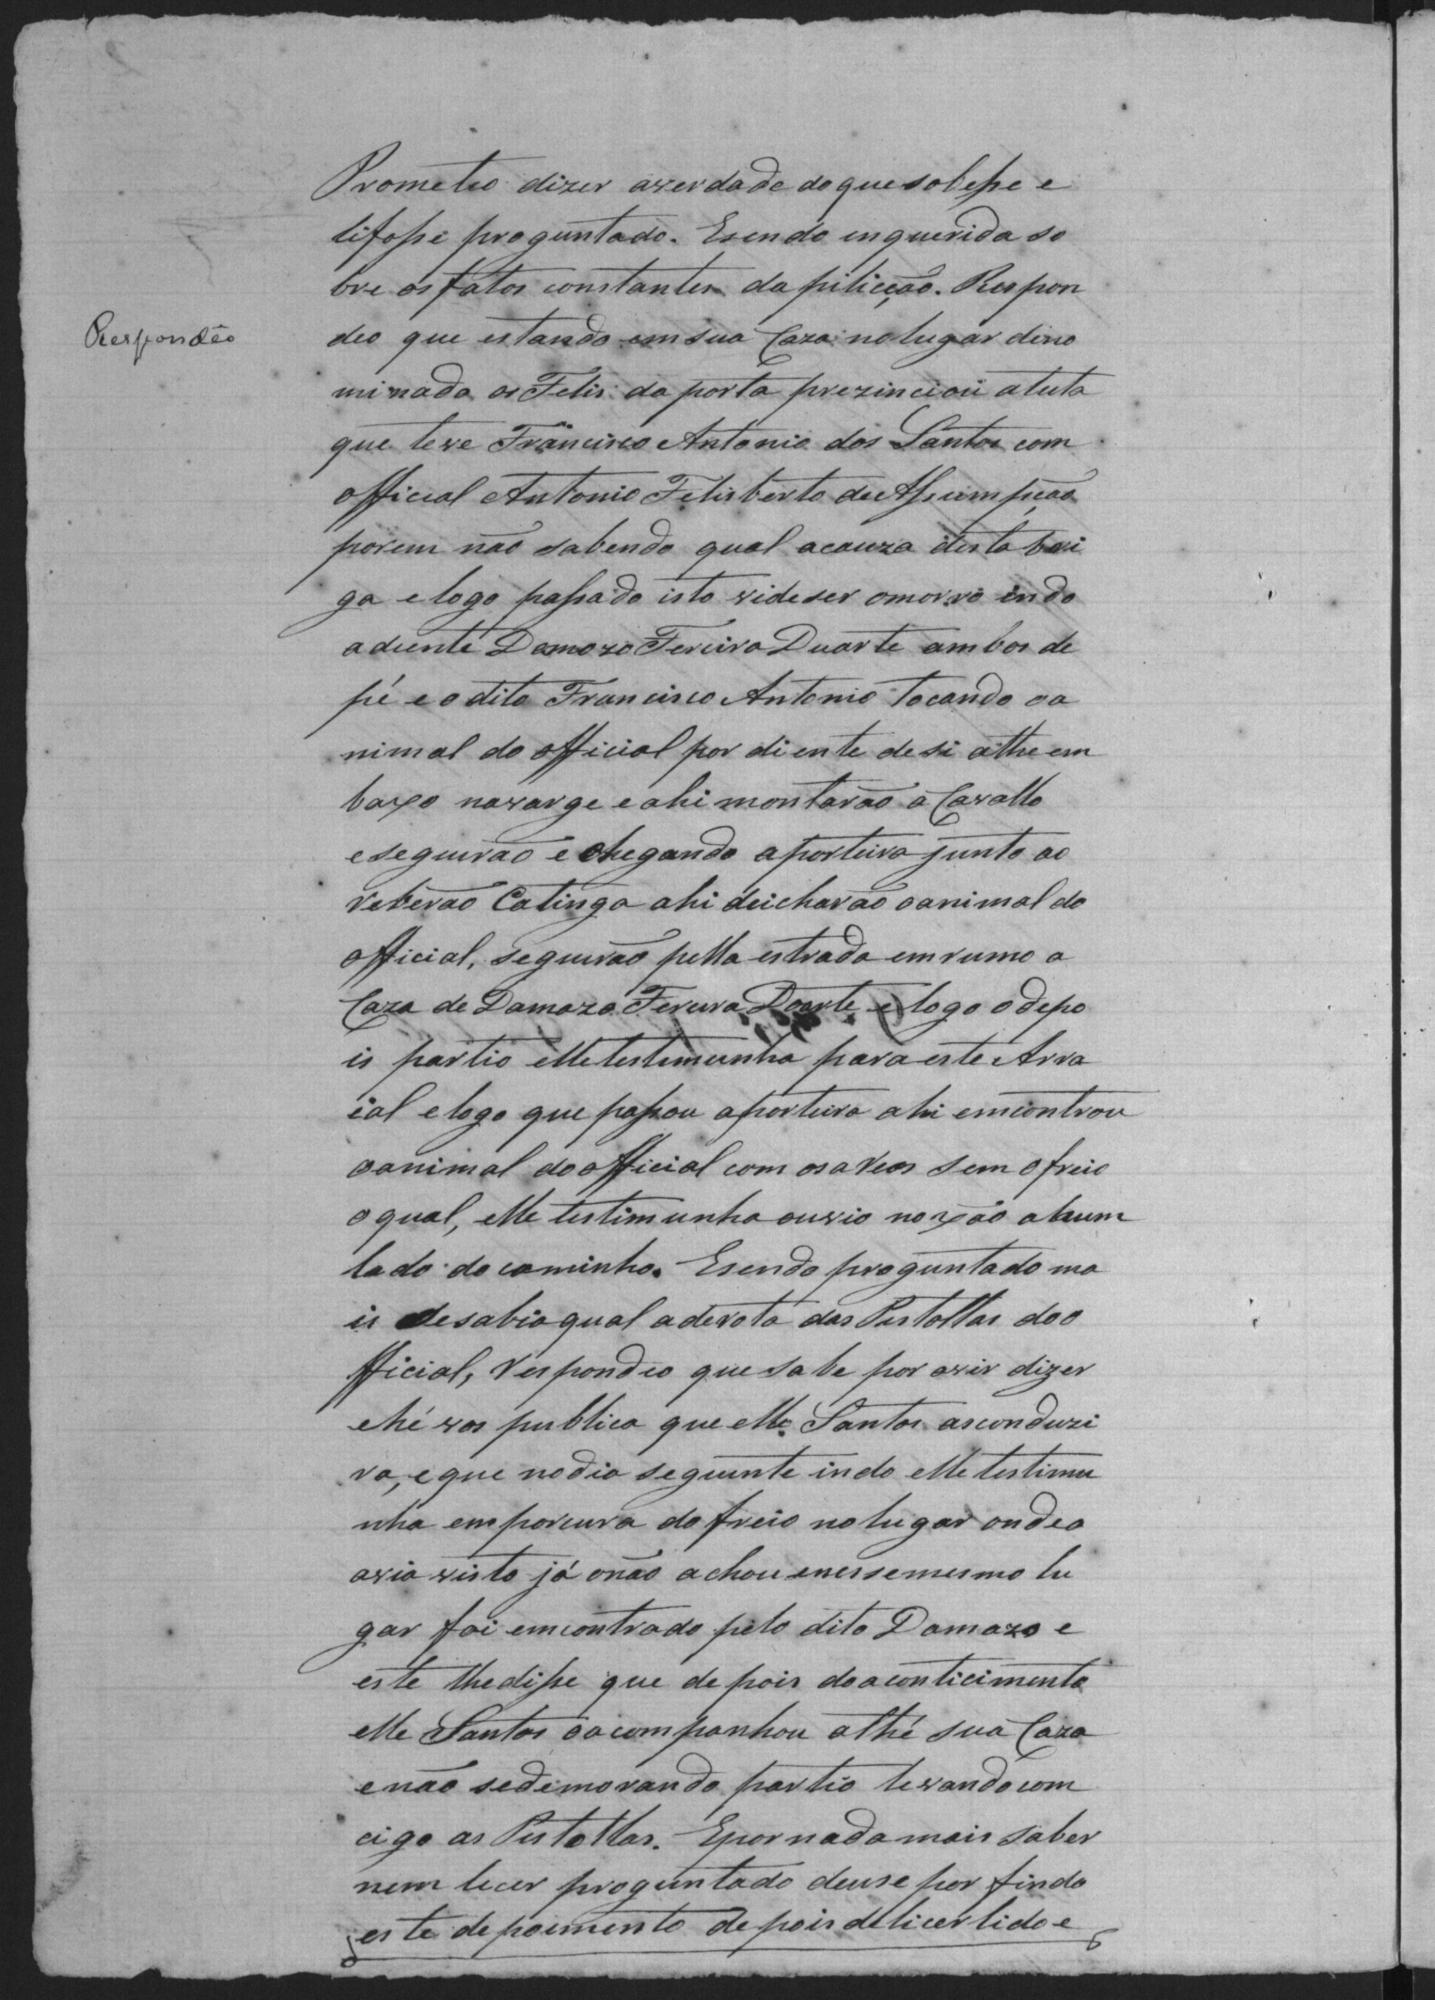 Prometeo dizer averdade do que sobesse e
lifosse proguntado. Esendo enquerida so
bre os fatos constantes da piticção. Respon
Respondêo
deo que estando em sua Caza no lugar dino
minada os Felis da porta prezinciou a luta
que teve Francisco Antonio dos Santos com
official Antonio Felisberto de Assumpção
porem não sabendo qual acauza desta bri
ga e logo passado isto vide ser omorro indo
adiente Damazo Fereira Duarte ambos de
pé e o dito Francisco Antonio tocando oa
nimal do official por diente de si athe em
baxo navarge e ahi montarão a Cavallo
eseguirão e chegando aporteira junto ao
reberão Catinga ahi deicharão oanimal do
official, seguirão pella estrada em rumo a
Caza de Damazo Ferera Doarte e logo o depo
is partio elle testemunha para este Arra
ial e logo que passou aporteira ahi emcontrou
oanimal do official com osareos sem o freio
oqual, elle testimunha ouvio no xão ahum
lado do caminho. Esendo proguntado ma
is se sabia qual aderota das Pistollas doo
fficial, respondeo que sabe por ovir dizer
ehé vos publica que elle Santos asconduzi
ra, eque nodia seguinte indo elle testimu
nha emporcura do freio nolugar ondeo
avia visto já onão achou enessemesmo lu
gar foi emcontrado pelo dito Damazo e
este lhedisse que depois doaconticimento
elle Santos oacompanhou athé sua Caza
enão sedemorando partio levandocom
cigo as Pistollas. Epornadamais saber
nem lecer proguntado deuse por findo
este depoimento depois delicerlidoe